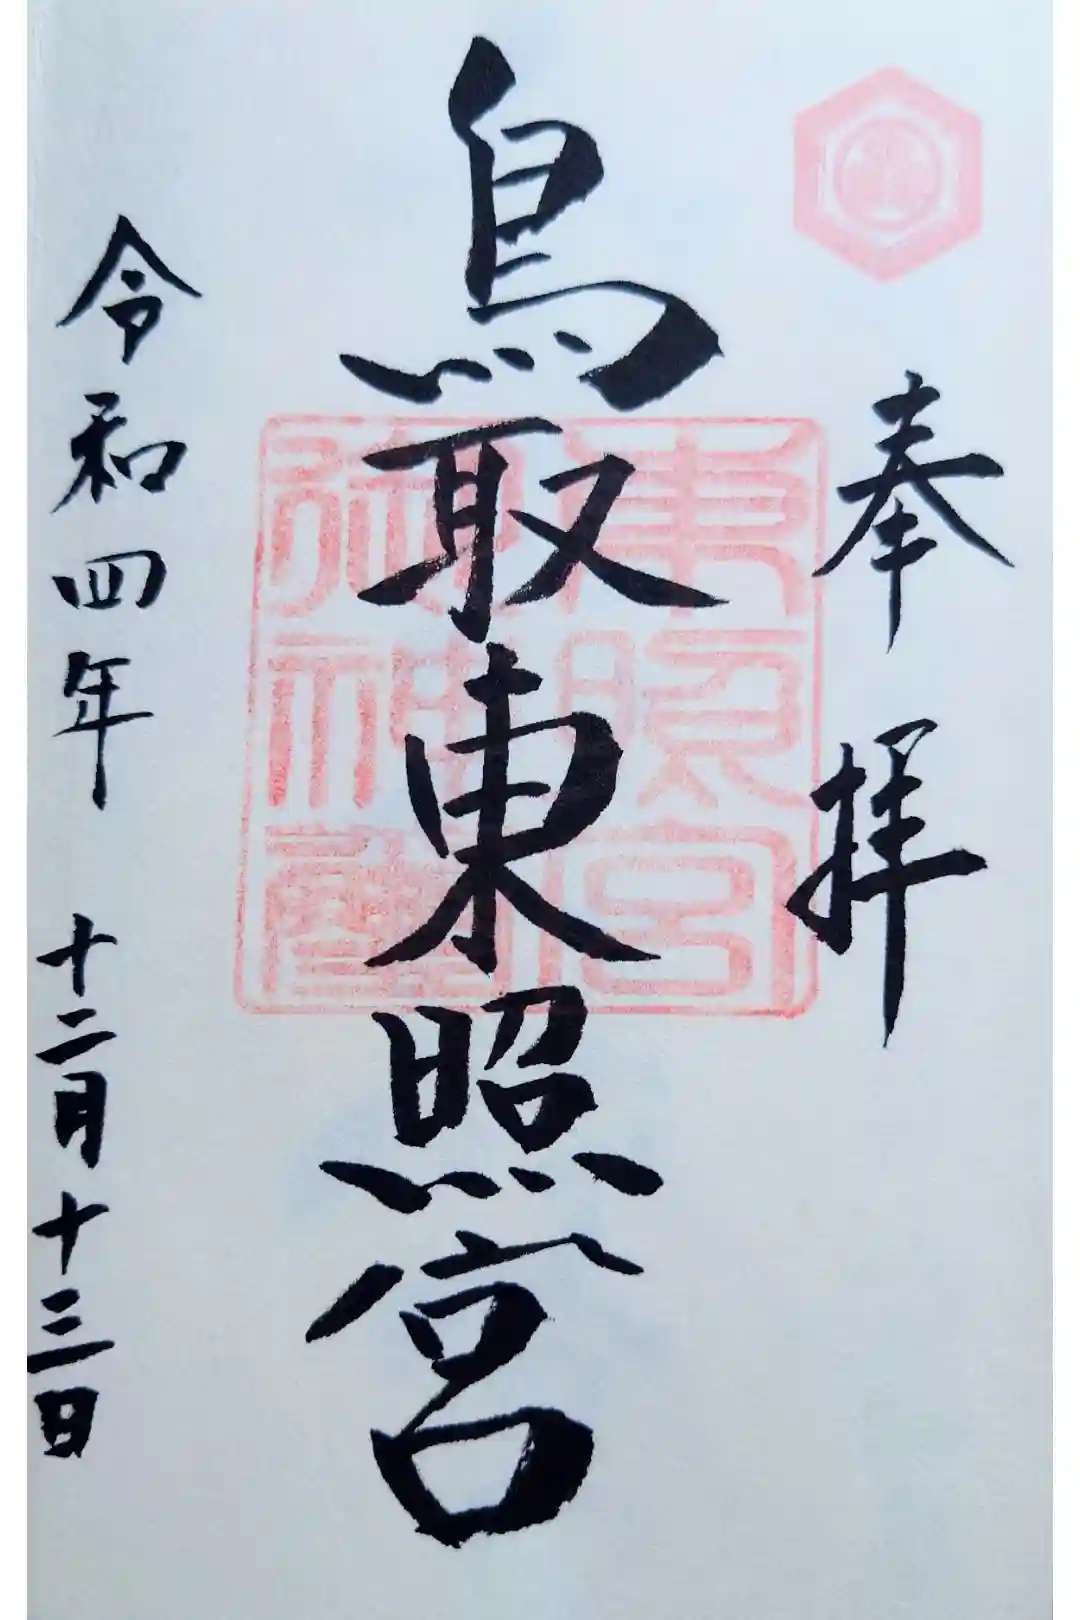 奉拝
鳥取東照宮
東照宮
御神璽
令和四年 十二月十三日